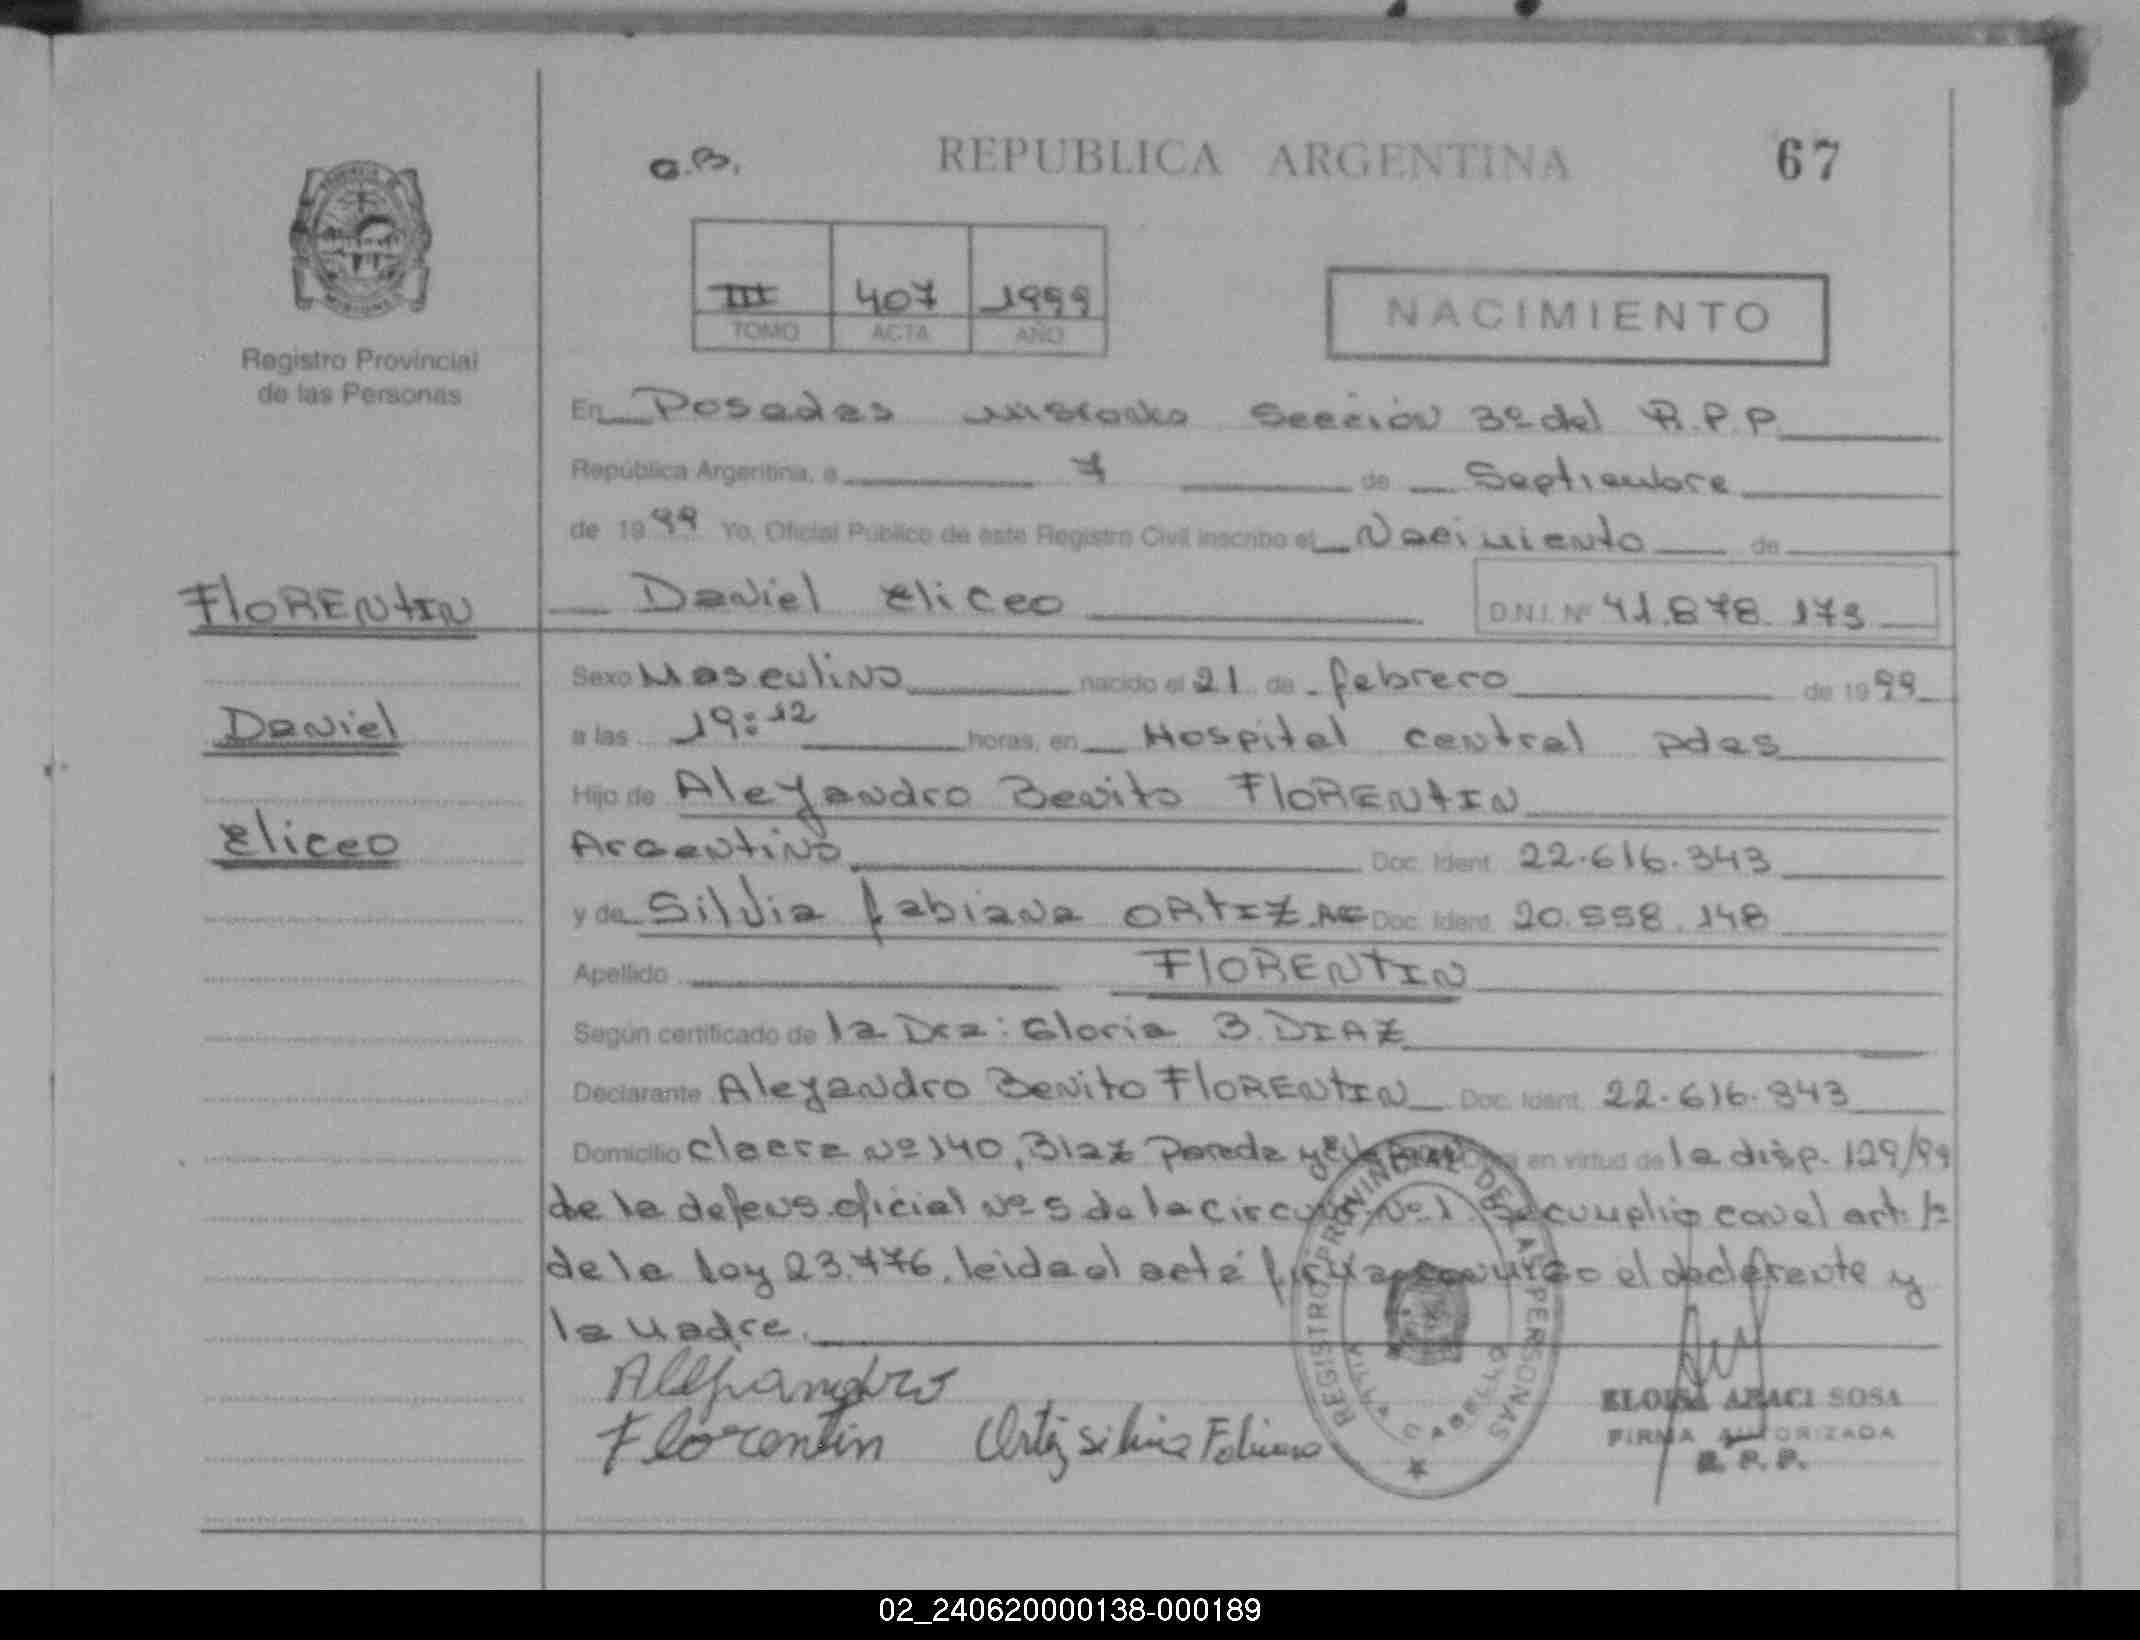 a.B.
REPUBLICA ARGENTINA
67
III 407 1999
TOMO ACTA AÑO
NACIMIENTO
Registro Provincial
de las Personas
En Posadas misiones Sección 3º del R.P.P.
República Argentina, a 7 de Septiembre
de 1999 Yo, Oficial Público de este Registro Civil inscribo el Nacimiento de
FLORENTIN Daniel Eliceo D.N.I. Nº 41.878.173
Sexo Masculino nacido el 21 de febrero de 1999
Daniel a las 19:12 horas, en Hospital central pdas
Hijo de Aleyandro Benito FLORENTIN
Eliceo Argentino Doc. Ident. 22.616.343
y de Silvia fabiana ORTIZ. AE Doc. Ident. 20.558.148
Apellido FLORENTIN
Según certificado de la Dra: Gloria B. DIAZ
Declarante Aleyandro Benito FLORENTIN Doc. Ident. 22.616.343
Domicilio claera Nº 140, Blaz Pareda y en virtud de la disp. 129/99
de la defens. oficial Nº 5 de la circuns. Nº 1. Se cumplio con el art. 1º
de la ley 23.776. leida el acta firman conmigo el declarente y
la madre.
Alejandro
Florentin Ortiz silvia Fabiana
REGISTRO PROVINCIAL DE LAS PERSONAS
VILLA CABELLO
ELOISA ARACI SOSA
FIRMA AUTORIZADA
R. P. P.
02_240620000138-000189